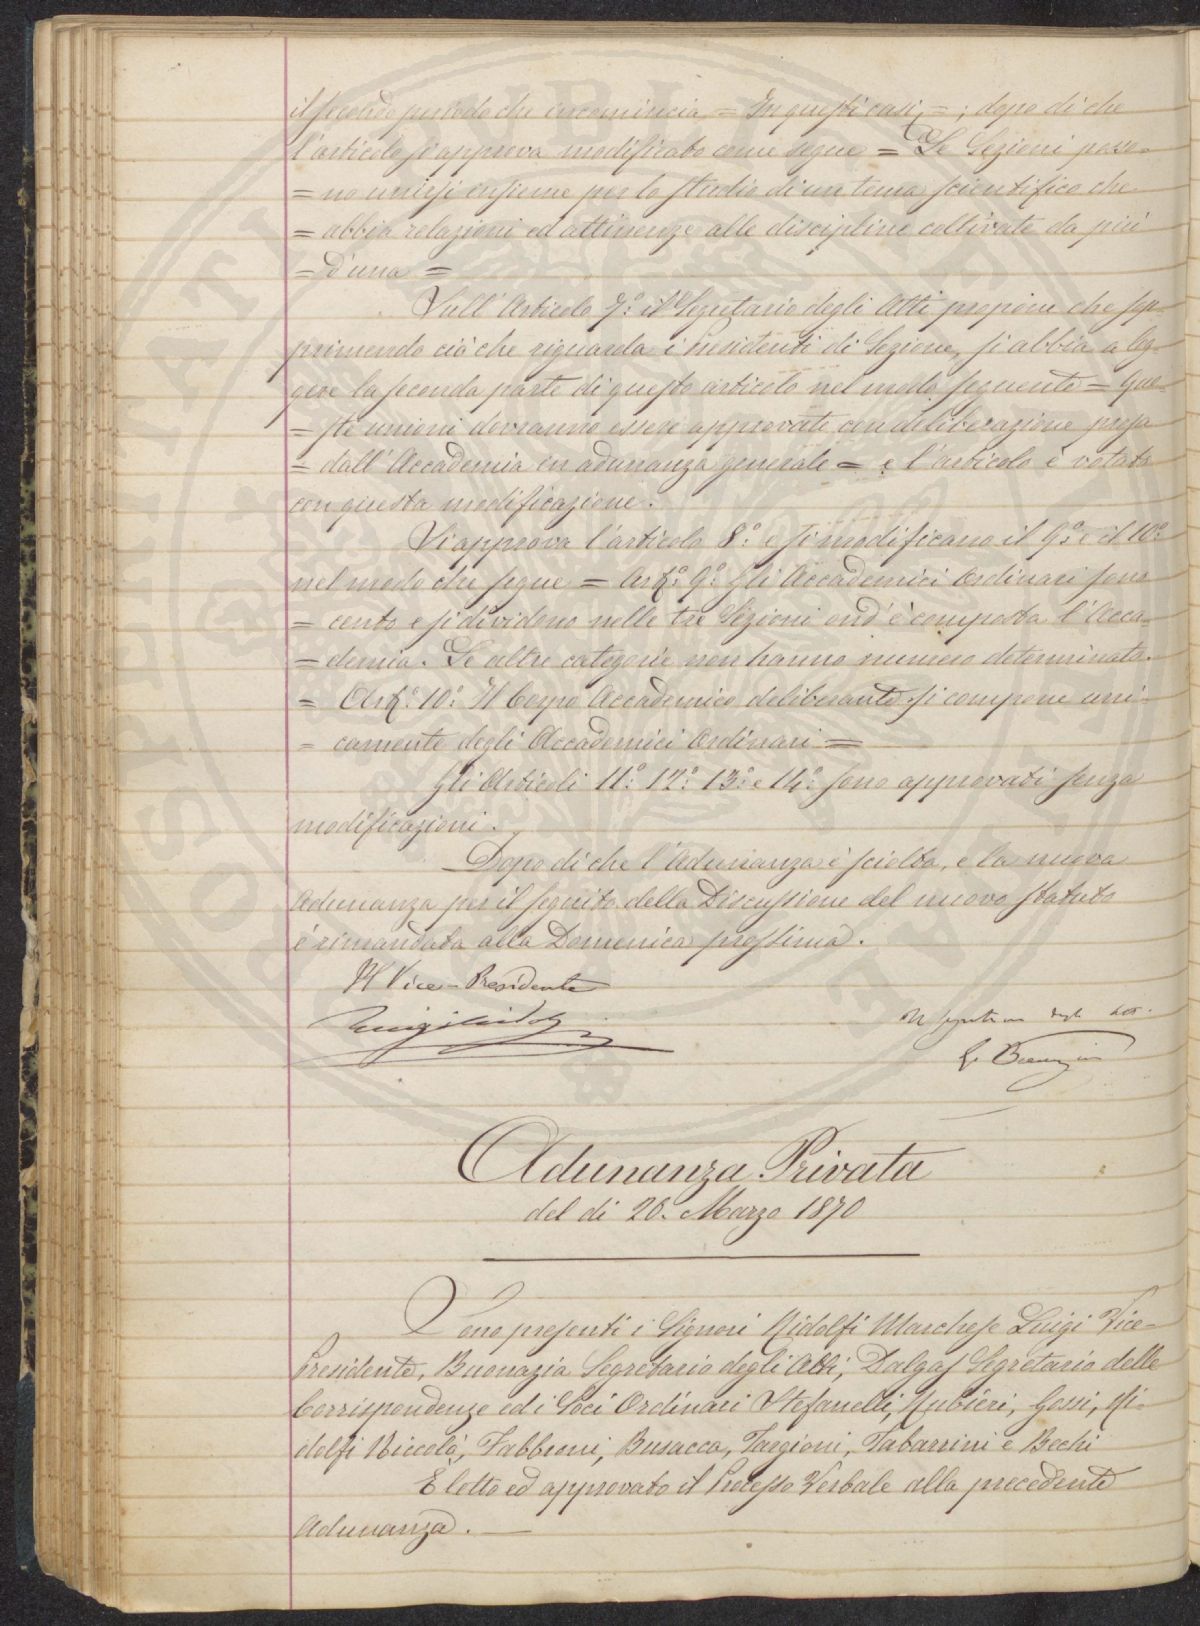 il secondo periodo che incomincia = In questi casi, = ; dopo di che
l'articolo si approva modificato come segue = Le Sezioni posso-
= no unirsi insieme per lo studio di un tema scientifico che
= abbia relazioni ed attinenze alle discipline coltivate da più
= d'una =
Sull'Articolo 7.º il Segretario degli Atti propone che sop-
primendo ciò che riguarda i Presidenti di Sezione, si abbia a leg-
gere la seconda parte di questo articolo nel modo seguente = Que-
= ste unioni dovranno essere approvate con deliberazione presa
= dall'Accademia in adunanza generale = e l'articolo è votato
con questa modificazione.
Si approva l'articolo 8.º e si modificano il 9.º e il 10.º
nel modo che segue = Art.º 9.º Gli Accademici Ordinari sono
= cento e si dividono nelle tre Sezioni ond'è composta l'Acca-
= demia. Le altre categorie non hanno numero determinato.
= Art.º 10.º Il Corpo Accademico deliberante si compone uni-
= camente degli Accademici Ordinari =
Gli Articoli 11.º 12.º 13.º e 14.º sono approvati senza
modificazioni.
Dopo di che l'Adunanza è sciolta, e la nuova
Adunanza per il seguito della Discussione del nuovo Statuto
è rimandata alla Domenica prossima.
Il Vice-Presidente
Luigi Ridolfi
Il Segretario degli Atti.
Adunanza Privata
del di 20. Marzo 1870
Sono presenti i Signori Ridolfi Marchese Luigi Vice-
Presidente, Buonazia Segretario degli Atti, Dalgas Segretario delle
Corrispondenze ed i Soci Ordinari Stefanelli, Rubieri, Gossi, Ri-
dolfi Niccolò, Fabbroni, Busacca, Targioni, Tabarrini e Bechi
È letto ed approvato il Processo Verbale alla precedente
Adunanza. —